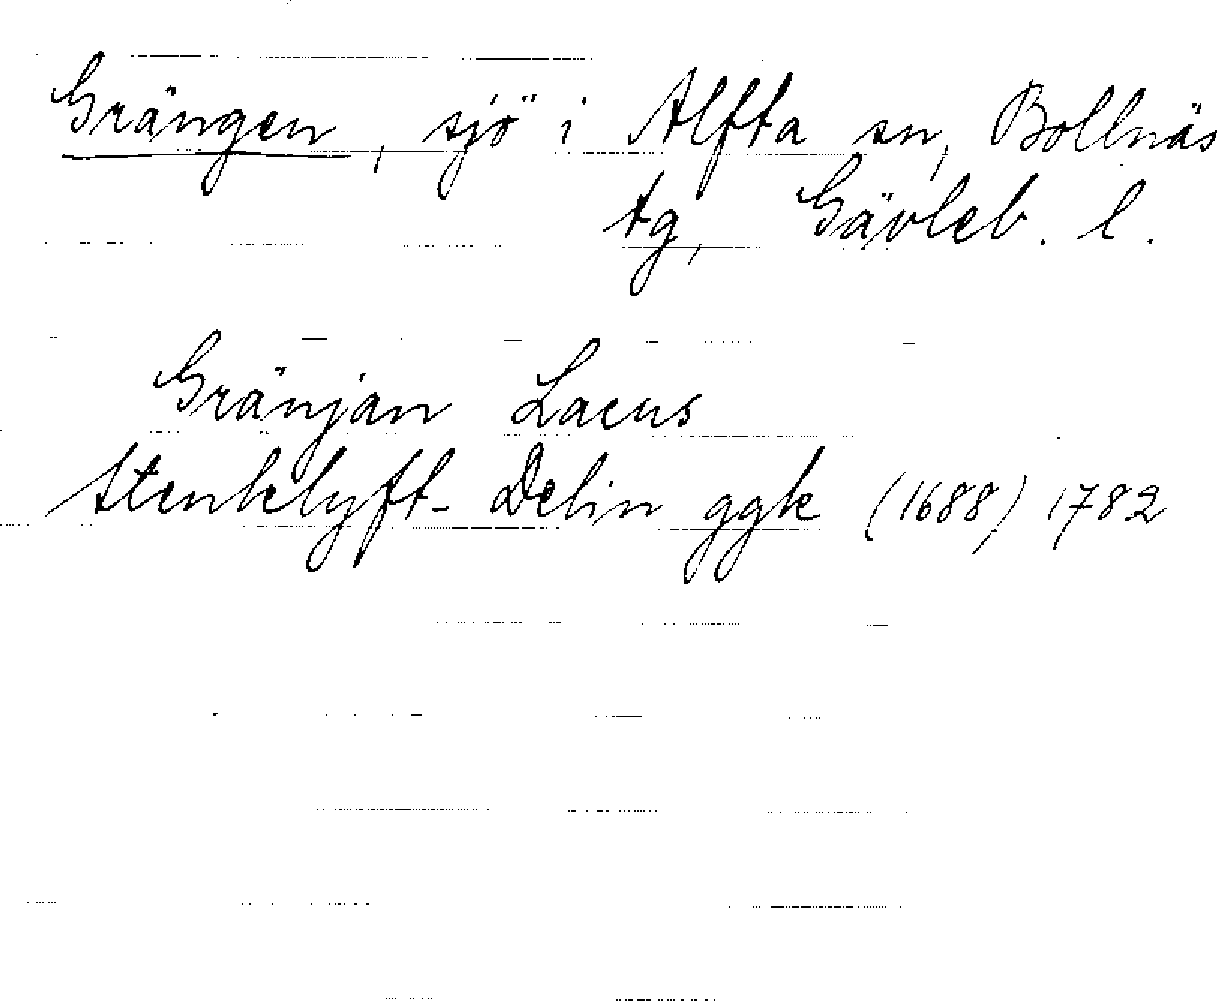 Grängen, sjö i Alfta sn, Bollnäs
tg, Gävleb. l.
Gränjan Lacus
Stenklyft- Delin ggk (1688) 1782